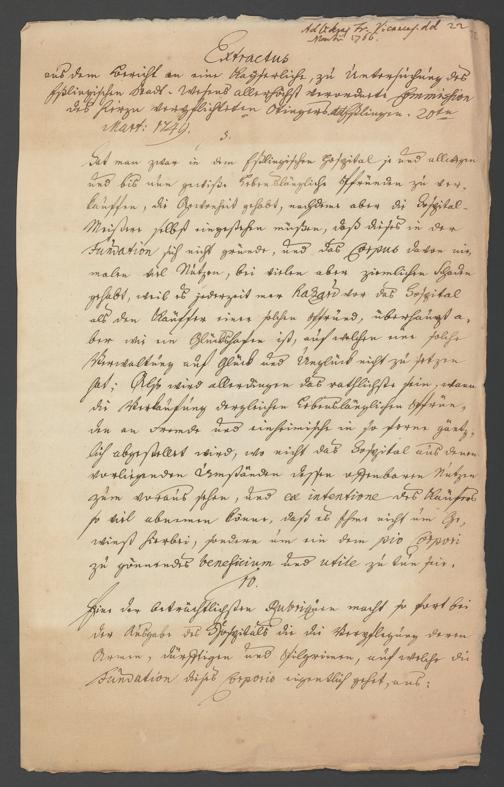 22
1766.
Extractus
aus dem Bericht an eine Kayserliche, zu Untersuchung des
Eßlingischen Stadt-Wesens allerhöchst verordnete Commission
des hierzu verpflichteten Eßlingen. 20ten
Mart: 1749.
Hat man zwar in dem Eßlingischen Hospital je und allewegen
und bis nun gewiße Lebenslängliche Pfründen zu ver-
kauffen, die Gewonheit gehabt, nachdeme aber die Hospital-
Meistere selbst eingestehen müßen, daß dieses in der
Fundation sich nicht gründe, und das Corpus davon nie-
malen viel Nutzen, bei vielen aber zimlichen Schaden
gehabt, weil es jederzeit mer hazard vor das Hospital
als den Käuffer einer solchen Pfründ, überhaupt a-
ber wie ein Glückshafen ist, auf welchen eine solche
Verwaltung auf Glück und Unglück nicht zu setzen
hat; Also wird allerdingen das rathlichste sein, wann
die Verkaufung dergleichen Lebenslänglichen Pfrün-
den an Fremde und einheimische in so ferne gäntz-
lich abgestellet wird, wo nicht das Hospital aus denen
vorliegenden Umständen dessen offenbaren Nutzen
zum voraus sehen, und ex intentione des Käuffers
so viel abnemen könne, daß es Ihme nicht um Ge-
winst hierbei, sondern um ein dem pio Corpori
zu gönnendes beneficium und utile zu tun seie.
10.
Eine der beträchtlichsten Rubriquen macht so fort bei
der Ausgabe des Hospitals die die Verpflegung deren
Armen, dürfftigen und Pilgrimen, auf welche die
Fundation dieses Corporis eigentlich gehet, aus: